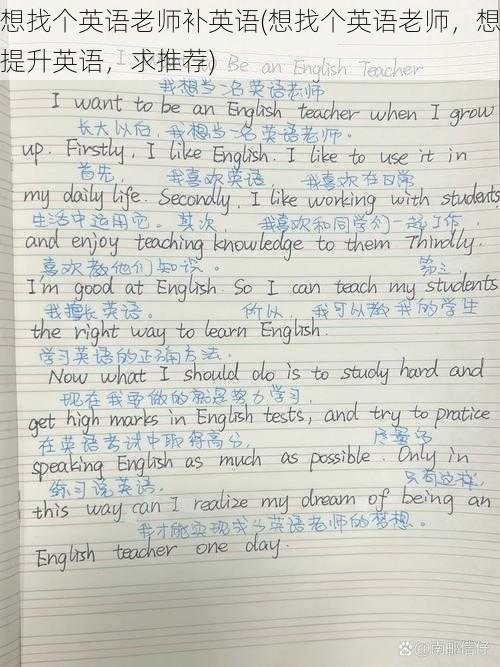 想找个英语老师补英语(想找个英语老师，想
提升英语，求推荐)
Be an English Teacher
我想当一名英语老师
I want to be an English teacher when I grow
长大以后,我想当一名英语老师。
up. Firstly, I like English. I like to use it in
首先, 我喜欢英语 我喜欢在日常
my daily life. Secondly, I like working with students
生活中运用它。其次, 我喜欢和同学们一起工作,
and enjoy teaching knowledge to them Thindly.
喜欢教他们知识。 第三,
I'm good at English. So I can teach my students
我擅长英语。 所以, 我可以教我的学生
the right way to learn English.
学习英语的正确方法.
Now what I should do is to study hard and
现在我要做的就是努力学习,
get high marks in English tests, and try to pratice
在英语考试中取得高分, 尽量多
speaking English as much as possible. Only in
练习说英语. 只有这样,
this way can I realize my dream of being an
我才能实现成为英语老师的梦想。
English teacher one day.